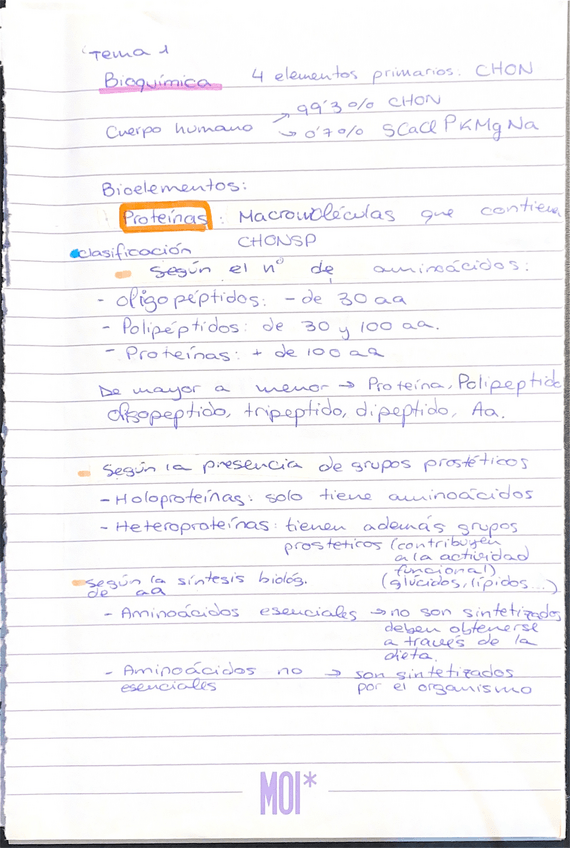 Tema 1
Bioquímica 4 elementos primarios. CHON
99'3% CHON
Cuerpo humano
0'7% SCaCl PKMgNa
Bioelementos:
Proteínas: Macromoléculas que contiene
CHONSP
clasificación
Según el nº de aminoácidos:
- oligopéptidos: - de 30 aa
- Polipéptidos: de 30 y 100 aa.
- Proteínas: + de 100 aa
De mayor a menor → Proteína, Polipeptido
oligopeptido, tripeptido, dipeptido, Aa.
Según la presencia de grupos prostéticos
- Holoproteínas: solo tiene aminoácidos
- Heteroproteínas: tienen además grupos
prostetiros (contribuyen
a la actividad
funcional)
(glúcidos, lípidos...)
según la síntesis biológ.
de aa
- Aminoácidos esenciales → no son sintetizados
deben obtenerse
a través de la
dieta.
- Aminoácidos no → son sintetizados
esenciales por el organismo
MOI*